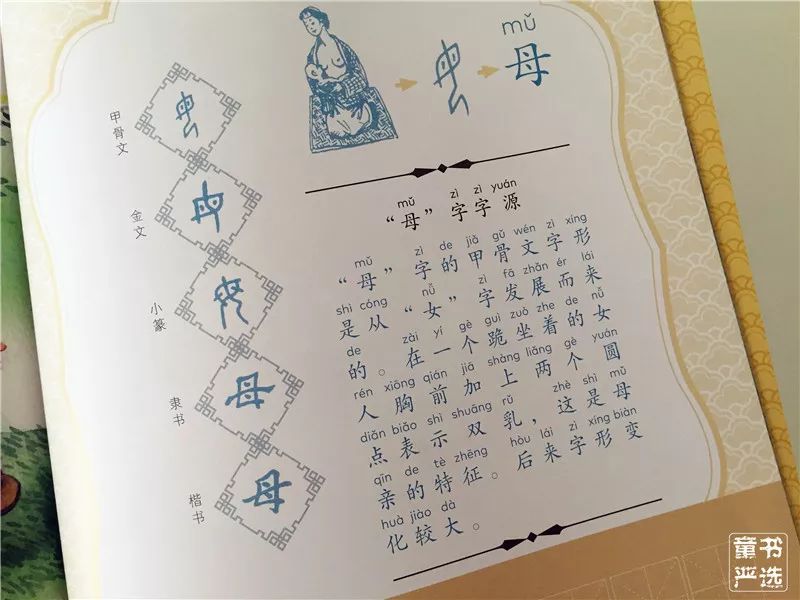 mǔ
母
甲骨文
金文
小篆
隶书
楷书
母
母
mǔ zì zì yuán
“母”字字源
mǔ zì de jiǎ gǔ wén zì xíng
“母”字的甲骨文字形
shì cóng nǚ zì fā zhǎn ér lái
是从“女”字发展而来
de zài yí gè guì zuò zhe de nǚ
的。在一个跪坐着的女
rén xiōng qián jiā shàng liǎng gè yuán
人胸前加上两个圆
diǎn biǎo shì shuāng rǔ zhè shì mǔ
点表示双乳，这是母
qīn de tè zhēng hòu lái zì xíng biàn
亲的特征。后来字形变
huà jiào dà
化较大。
童书
严选